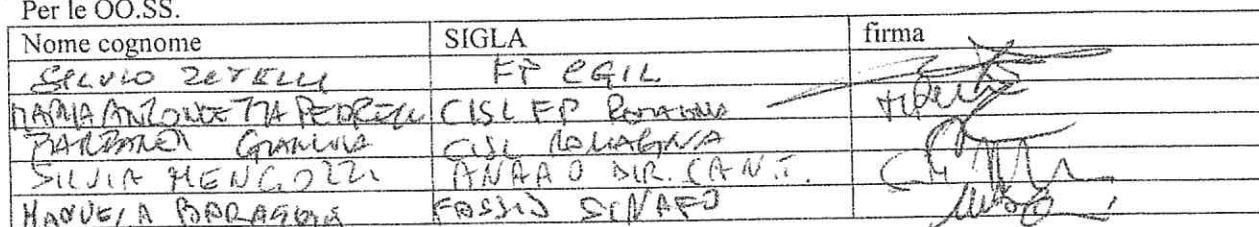 Per le OO.SS.
Nome cognome SIGLA firma
SILVIO ZETELLI FP CGIL
MARIA ANTONIETTA PEDRELLI CISL FP ROMAGNA
GIANLUCA CISL ROMAGNA
SILVIA MENGOZZI ANAAO DIR.
MANUELA FASSID SINAFO